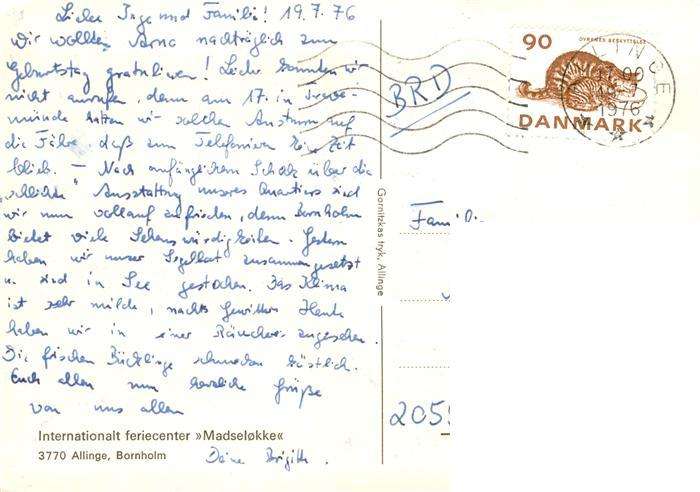 Liebe Inge und Familie! 19.7.76
Wir wollten Arno nachträglich zum
Geburtstag gratulieren! Leider konnten wir
nicht anrufen, denn am 17. in Trave-
münde hatten wir solchen Ansturm auf
die Fähre, daß zum Telefonieren keine Zeit
blieb. – Nach anfänglichem Schock über die
"schlichte" Ausstattung unseres Quartiers sind
wir nun vollauf zufrieden, denn Bornholm
bietet viele Sehenswürdigkeiten. Gestern
haben wir unser Segelboot zusammengesetzt
u. sind in See gestochen. Das Klima
ist sehr milde, nachts Gewitter. Heute
haben wir in einer Räucherei zugesehen.
Die frischen Bücklinge schmecken köstlich.
Euch allen nun herzliche Grüße
von uns allen
Deine Brigitte.
Internationalt feriecenter »Madseløkke«
3770 Allinge, Bornholm
Gornitzkas tryk, Allinge
BRD
90
DYRENES BESKYTTELSE
DANMARK
1976
Fam. D.
205